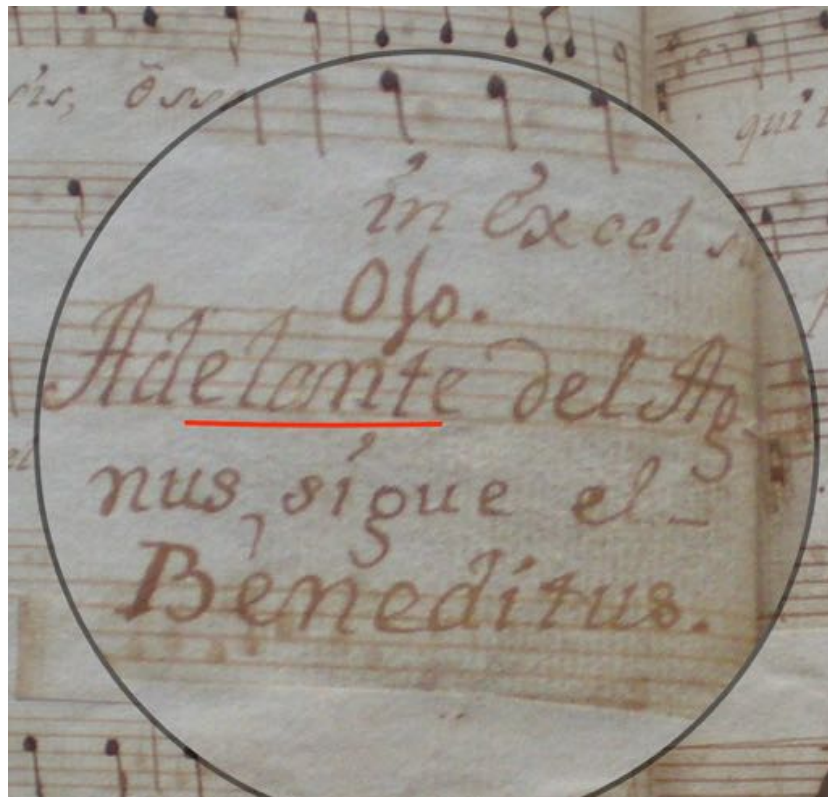 in Excel
Oſo.
Adelante del Ag
nus, sigue el-
Beneditus.